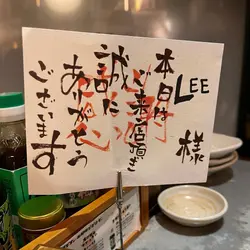 LEE 様
本日は
ご来店頂き
誠に
ありがとう
ございます